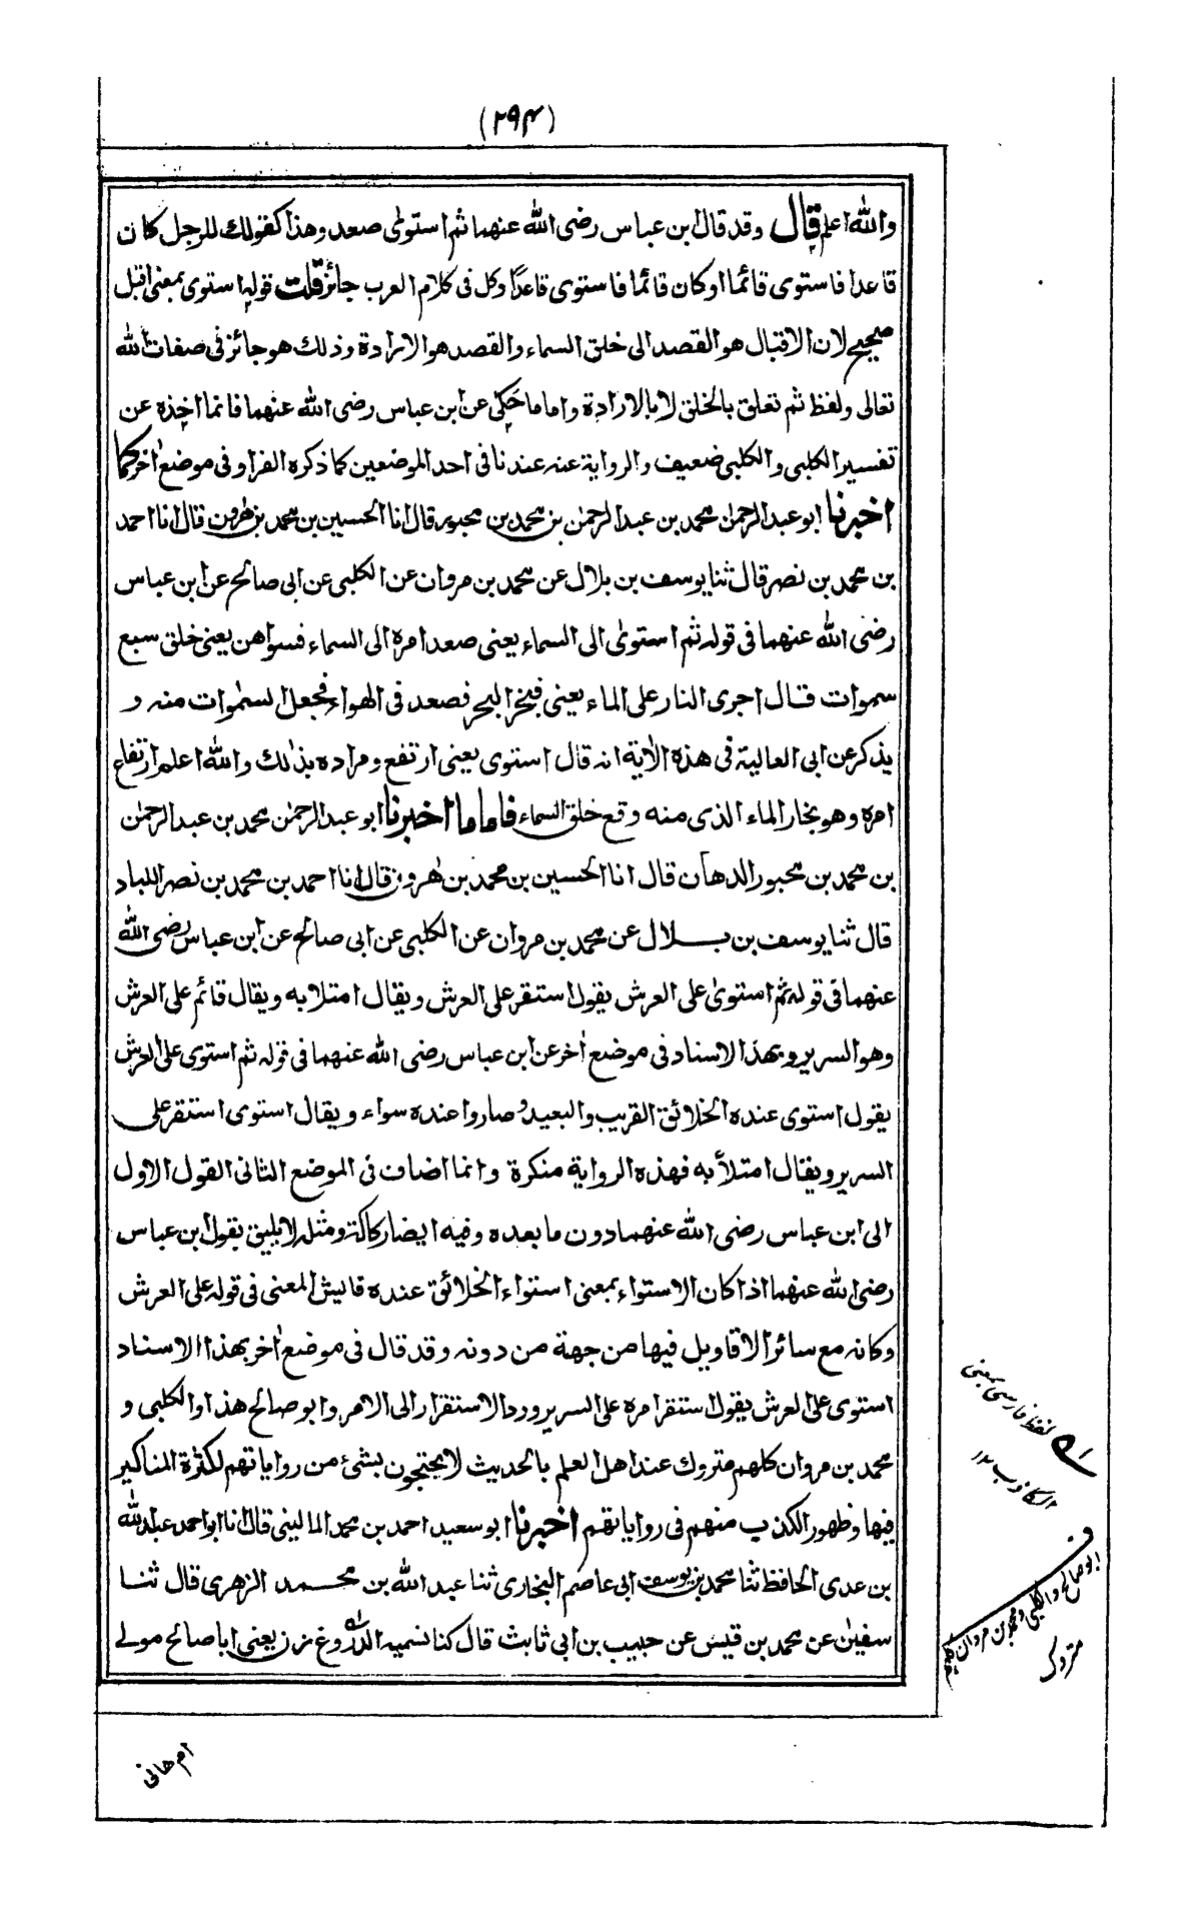 (٢٩٤)
والله اعلم قال وقد قال ابن عباس رضى الله عنهما ثم استوى صعد وهذا كقولك للرجل كان
قاعدا فاستوى قائما او كان قائما فاستوى قاعدًا وكل فى كلام العرب جائز قلت قوله استوى بمعنى اقبل
صحيح لان الاقبال هو القصد الى خلق السماء والقصد هو الارادة وذلك هو جائز فى صفات الله
تعالى ولفظ ثم تعلق بالخلق لا بالارادة واما ما حكى عن ابن عباس رضى الله عنهما فانما اخذه عن
تفسير الكلبى والكلبى ضعيف والرواية عنه عندنا فى احد الموضعين كما ذكره الفراء وفى موضع اٰخر كما
اخبرنا ابو عبد الرحمٰن محمد بن عبد الرحمٰن بن محمد بن محبور قال انا الحسين بن محمد بن هٰرون قال انا احمد
بن محمد بن نصر قال ثنا يوسف بن بلال عن محمد بن مروان عن الكلبى عن ابى صالح عن ابن عباس
رضى الله عنهما فى قوله ثم استوىٰ الى السماء يعنى صعد امره الى السماء فسواهن يعنى خلق سبع
سموات قال اجرى النار على الماء يعنى فبخر البحر فصعد فى الهواء فجعل السمٰوات منه و
يذكر عن ابى العالية فى هذه الاٰية انه قال استوى يعنى ارتفع ومراده بذٰلك والله اعلم ارتفاع
امره وهو بخار الماء الذى منه وقع خلق السماء فاما ما اخبرنا ابو عبد الرحمٰن محمد بن عبد الرحمٰن
بن محمد بن محبور الدهان قال انا الحسين بن محمد بن هٰرون قال انا احمد بن محمد بن نصر اللباد
قال ثنا يوسف بن بلال عن محمد بن مروان عن الكلبى عن ابى صالح عن ابن عباس رضى الله
عنهما فى قوله ثم استوىٰ على العرش يقول استقر على العرش ويقال امتلا به ويقال قائم على العرش
وهو السرير وبهذا الاسناد فى موضع اٰخر عن ابن عباس رضى الله عنهما فى قوله ثم استوى على العرش
يقول استوى عنده الخلائق القريب والبعيد وصاروا عنده سواء ويقال استوى استقر على
السرير ويقال امتلأ به فهذه الرواية منكرة وانما اضاف فى الموضع الثانى القول الاول
الى ابن عباس رضى الله عنهما دون ما بعده وفيه ايضا ركاكة ومثله لا يليق بقول ابن عباس
رضى الله عنهما اذا كان الاستواء بمعنى استواء الخلائق عنده فايش المعنى فى قوله على العرش
وكانه مع سائر الاقاويل فيها من جهة من دونه وقد قال فى موضع اٰخر بهذا الاسناد
استوى على العرش يقول استقر امره على السرير ورد الاستقرار الى الامر وابو صالح هذا والكلبى و
محمد بن مروان كلهم متروك عند اهل العلم بالحديث لا يحتجون بشئ من رواياتهم لكثرة المناكير
فيها وظهور الكذب منهم فى رواياتهم اخبرنا ابو سعيد احمد بن محمد المالينى قال انا ابو احمد عبد الله
بن عدى الحافظ ثنا محمد بن يوسف ابى عاصم البخارى ثنا عبد الله بن محمد الزهرى قال ثنا
سفين عن محمد بن قيس عن حبيب بن ابى ثابت قال كنا نسميه الدروغ زن يعنى ابا صالح مولے
ام هانى
لفظ فارسى بمعنى
الكاذب ١٢
ف
ابو صالح والكلبى ومحمد بن مروان كلهم
متروك